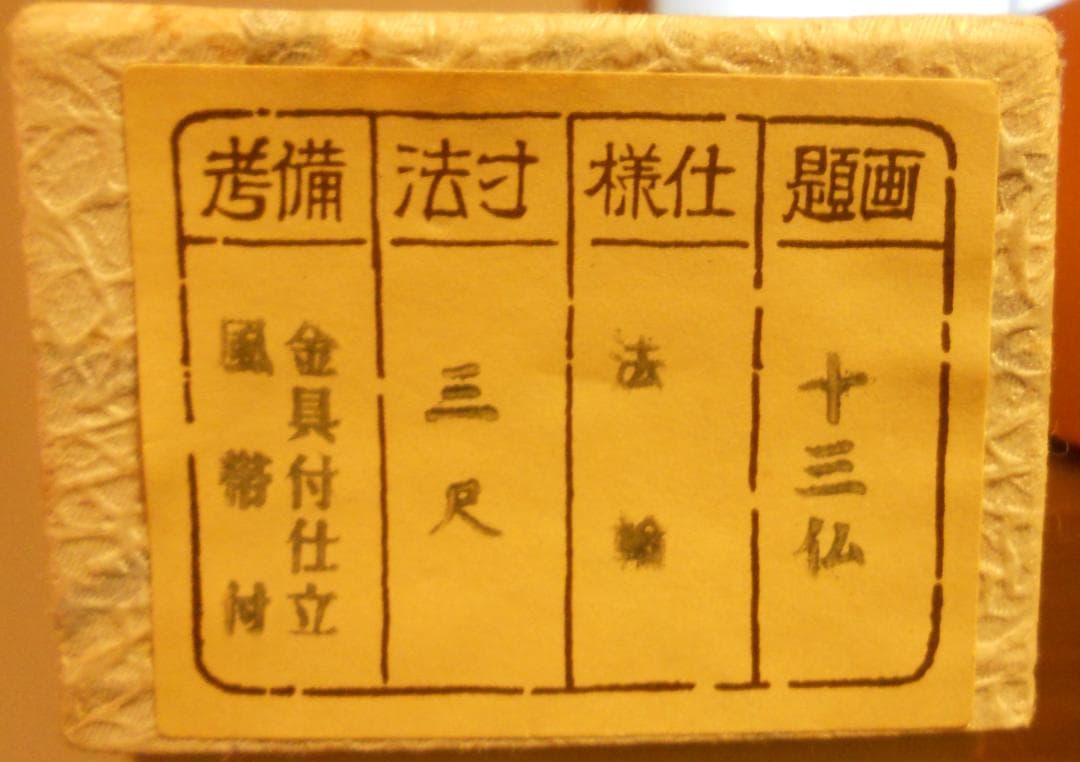 画題
十三仏
仕様
法輪
寸法
三尺
備考
金具付仕立
風帯付